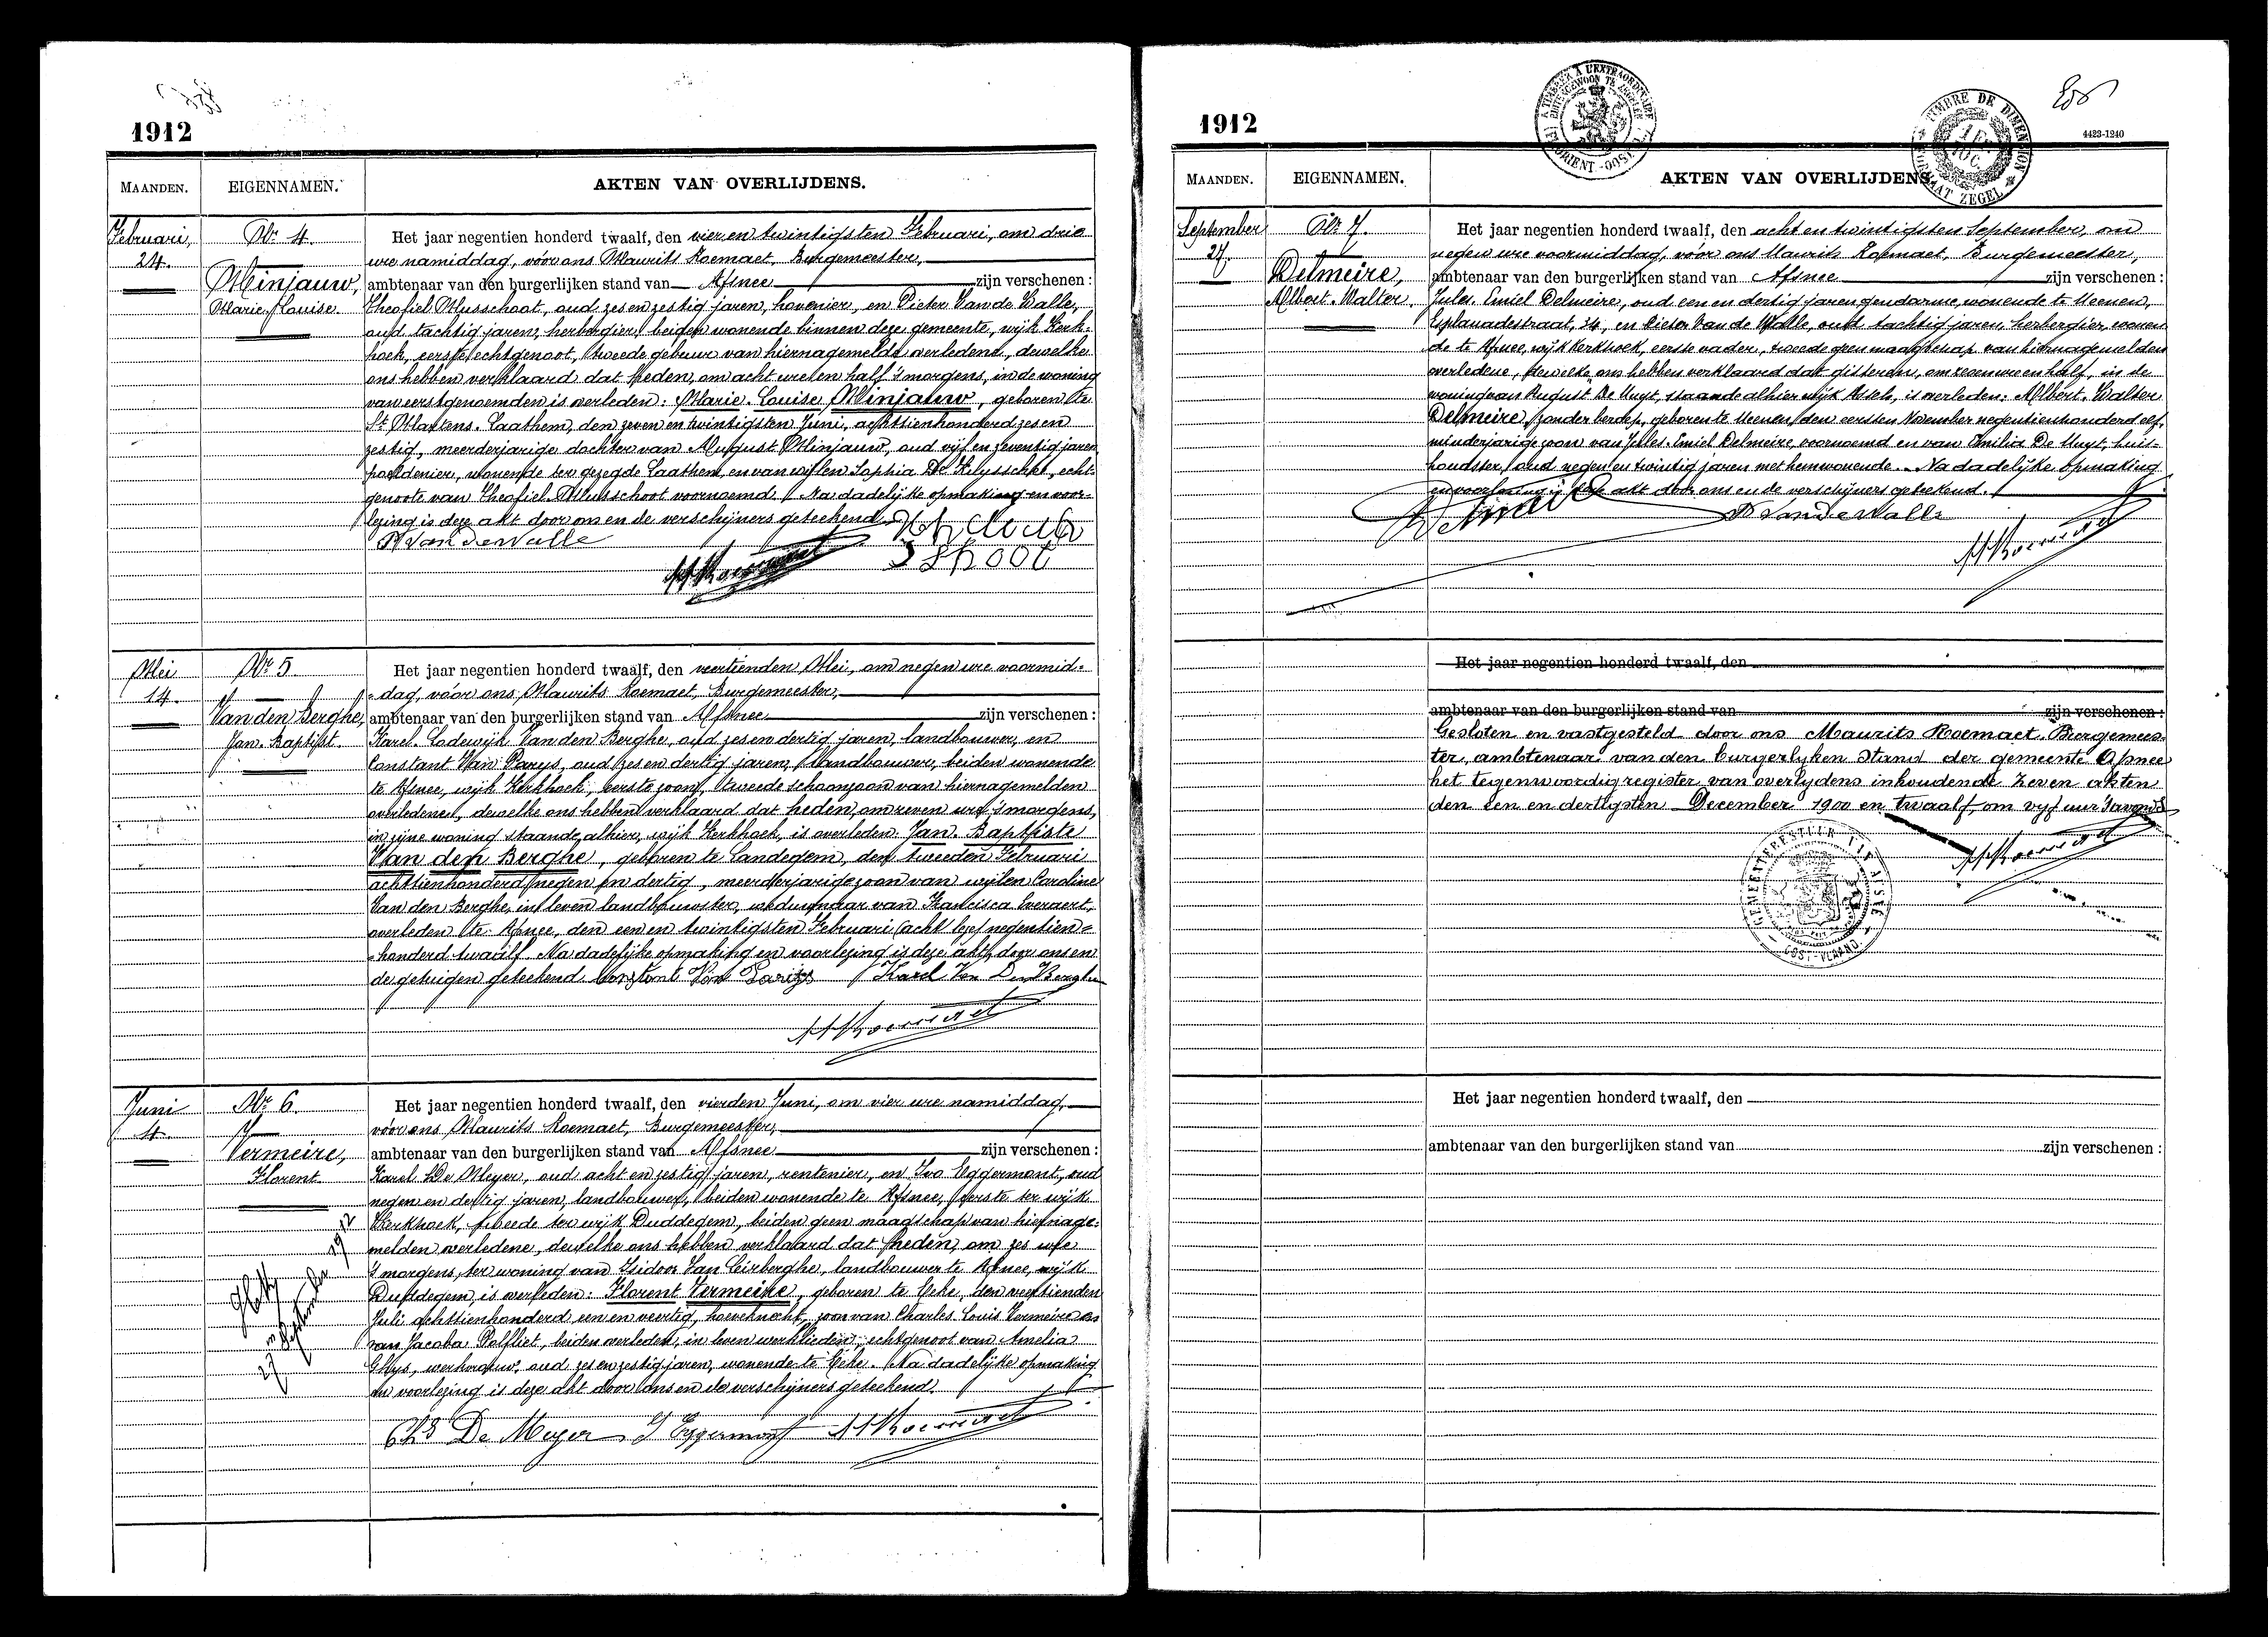 1912
MAANDEN.
EIGENNAMEN.
AKTEN VAN OVERLIJDENS.
Februari,
24.
Nr. 4.
Minjauw,
Marie-Louise.
Het jaar negentien honderd twaalf, den vier en twintigsten Februari, om drie
ure namiddag, vóór ons Maurits Roemaet, Burgemeester,
ambtenaar van den burgerlijken stand van Afsnee zijn verschenen:
Theofiel Musschoot, oud zes en zestig jaren, hovenier, en Pieter Van de Walle,
oud tachtig jaren, herbergier, beiden wonende binnen deze gemeente, wijk Kerk-
hoek, eerste echtgenoot, tweede gebuur van hiernagemelde overledene, dewelke
ons hebben verklaard dat heden, om acht ure en half 's morgens, in de woning
van eerstgenoemden is overleden: Marie-Louise Minjauw, geboren te
St Martens-Laathem, den zeven en twintigsten Juni, achttienhonderd zes en
zestig, meerderjarige dochter van August Minjauw, oud vijf en zeventig jaren
wonende ter gezegde Laathem, en van wijlen Sophia De echt-
genoote van Theofiel Musschoot voornoemd. Na dadelijke opmaking en voor-
lezing is deze akt door ons en de verschijners geteekend.
P Van de Walle
Mei
14.
Nr. 5.
Van den Berghe,
Jan-Baptist.
Het jaar negentien honderd twaalf, den veertienden Mei, om negen ure voormid-
dag, vóór ons Maurits Roemaet, Burgemeester,
ambtenaar van den burgerlijken stand van Afsnee zijn verschenen:
Karel-Lodewijk Van den Berghe, oud zes en dertig jaren, landbouwer, en
Constant Van Parys, oud zes en dertig jaren, landbouwer, beiden wonende
te Afsnee, wijk Kerkhoek, eerste zoon, tweede schoonzoon van hiernagemelden
overledenen, dewelke ons hebben verklaard dat heden, om zeven ure 's morgens,
in zijne woning staande alhier, wijk Kerkhoek, is overleden: Jan-Baptiste
Van den Berghe, geboren te Landegem, den tweeden Februari
achttienhonderd negen en dertig, meerderjarige zoon van wijlen Caroline
Van den Berghe, in leven landbouwster, weduwnaar van Francisca Everaert,
overleden te Afsnee, den een en twintigsten Februari negentien-
honderd twaalf. Na dadelijke opmaking en voorlezing is deze akt door ons en
de getuigen geteekend. Constant Van Parijs Karel Van Den Berghe
Juni
4.
Nr. 6.
Vermeire,
Florent
Het jaar negentien honderd twaalf, den vierden Juni, om vier ure namiddag,
vóór ons Maurits Roemaet, Burgemeester,
ambtenaar van den burgerlijken stand van Afsnee zijn verschenen:
Karel De Meyer, oud acht en zestig jaren, rentenier, en Ivo Eggermont, oud
negen en dertig jaren, landbouwer, beiden wonende te Afsnee, eerste ter wijk
Kerkhoek, tweede ter wijk Duddegem, beiden geen maagschap van hiernage-
melden overledene, dewelke ons hebben verklaard dat heden, om zes ure
's morgens, ter woning van Isidoor Van landbouwer te Afsnee, wijk
Duddegem, is overleden: Florent Vermeire, geboren te Eeke, den veertienden
Juli achttienhonderd een en veertig, zoon van Charles-Louis Vermeire en
van Jacoba Polfliet, beiden overleden, in leven werklieden, echtgenoot van Amelia
Ghys, werkvrouw, oud zes en zestig jaren, wonende te Eeke. Na dadelijke opmaking
en voorlezing is deze akt door ons en de verschijners geteekend.
Chs De Meyer I Eggermont
1912
4423-1240
MAANDEN.
EIGENNAMEN.
AKTEN VAN OVERLIJDENS.
September
27.
Nr. 7.
Delmeire,
Albert-Walter.
Het jaar negentien honderd twaalf, den acht en twintigsten September, om
negen ure voormiddag, vóór ons Maurits Roemaet, Burgemeester,
ambtenaar van den burgerlijken stand van Afsnee zijn verschenen:
Jules-Emiel Delmeire, oud een en dertig jaren, gendarme, wonende te Meenen,
Esplanadestraat, 34, en Pieter Van de Walle, oud tachtig jaren, herbergier, wonen-
de te Afsnee, wijk Kerkhoek, eerste vader, tweede geen maagschap van hiernagemelden
overledene, dewelke ons hebben verklaard dat gisteren, om zeven ure en half, in de
woning van August De Muyt, staande alhier wijk Assels, is overleden: Albert-Walter
Delmeire, zonder beroep, geboren te Meenen, den eersten November negentienhonderd elf,
minderjarige zoon van Jules-Emiel Delmeire, voornoemd en van Emilia De Muyt, huis-
houdster, oud negen en twintig jaren met hem wonende. Na dadelijke opmaking
en voorlezing is deze akt door ons en de verschijners geteekend.
P Van de Walle
Het jaar negentien honderd twaalf, den
ambtenaar van den burgerlijken stand van zijn verschenen:
Gesloten en vastgesteld door ons Maurits Roemaet, Burgemees-
ter, ambtenaar van den burgerlyken stand der gemeente Afsnee
het tegenwoordig register van overlydens inhoudende zeven akten
den een en dertigsten December 1900 en twaalf, om vyf uur 's avonds
GEMEENTEBESTUUR VAN AFSNÉ
OOST-VLAAND.
Het jaar negentien honderd twaalf, den
ambtenaar van den burgerlijken stand van zijn verschenen: